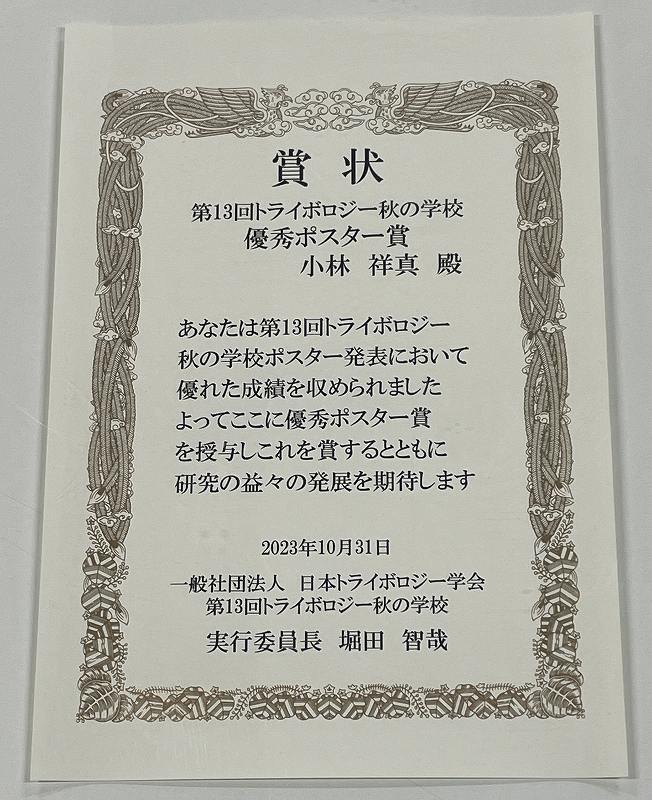 賞 状
第13回トライボロジー秋の学校
優秀ポスター賞
小林 祥真 殿
あなたは第13回トライボロジー
秋の学校ポスター発表において
優れた成績を収められました
よってここに優秀ポスター賞
を授与しこれを賞するとともに
研究の益々の発展を期待します
2023年10月31日
一般社団法人 日本トライボロジー学会
第13回トライボロジー秋の学校
実行委員長 堀田 智哉